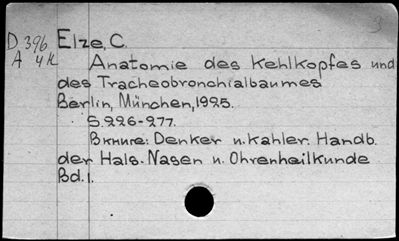 3
D 396 Elze, C.
A 4k Anatomie des Kehlkopfes und
des Tracheobronchialbaumes
Berlin, München, 1925.
S. 226-277.
Вкниге: Denker u. Kahler. Handb.
der Hals- Nasen u. Ohrenheilkunde
Bd. 1.